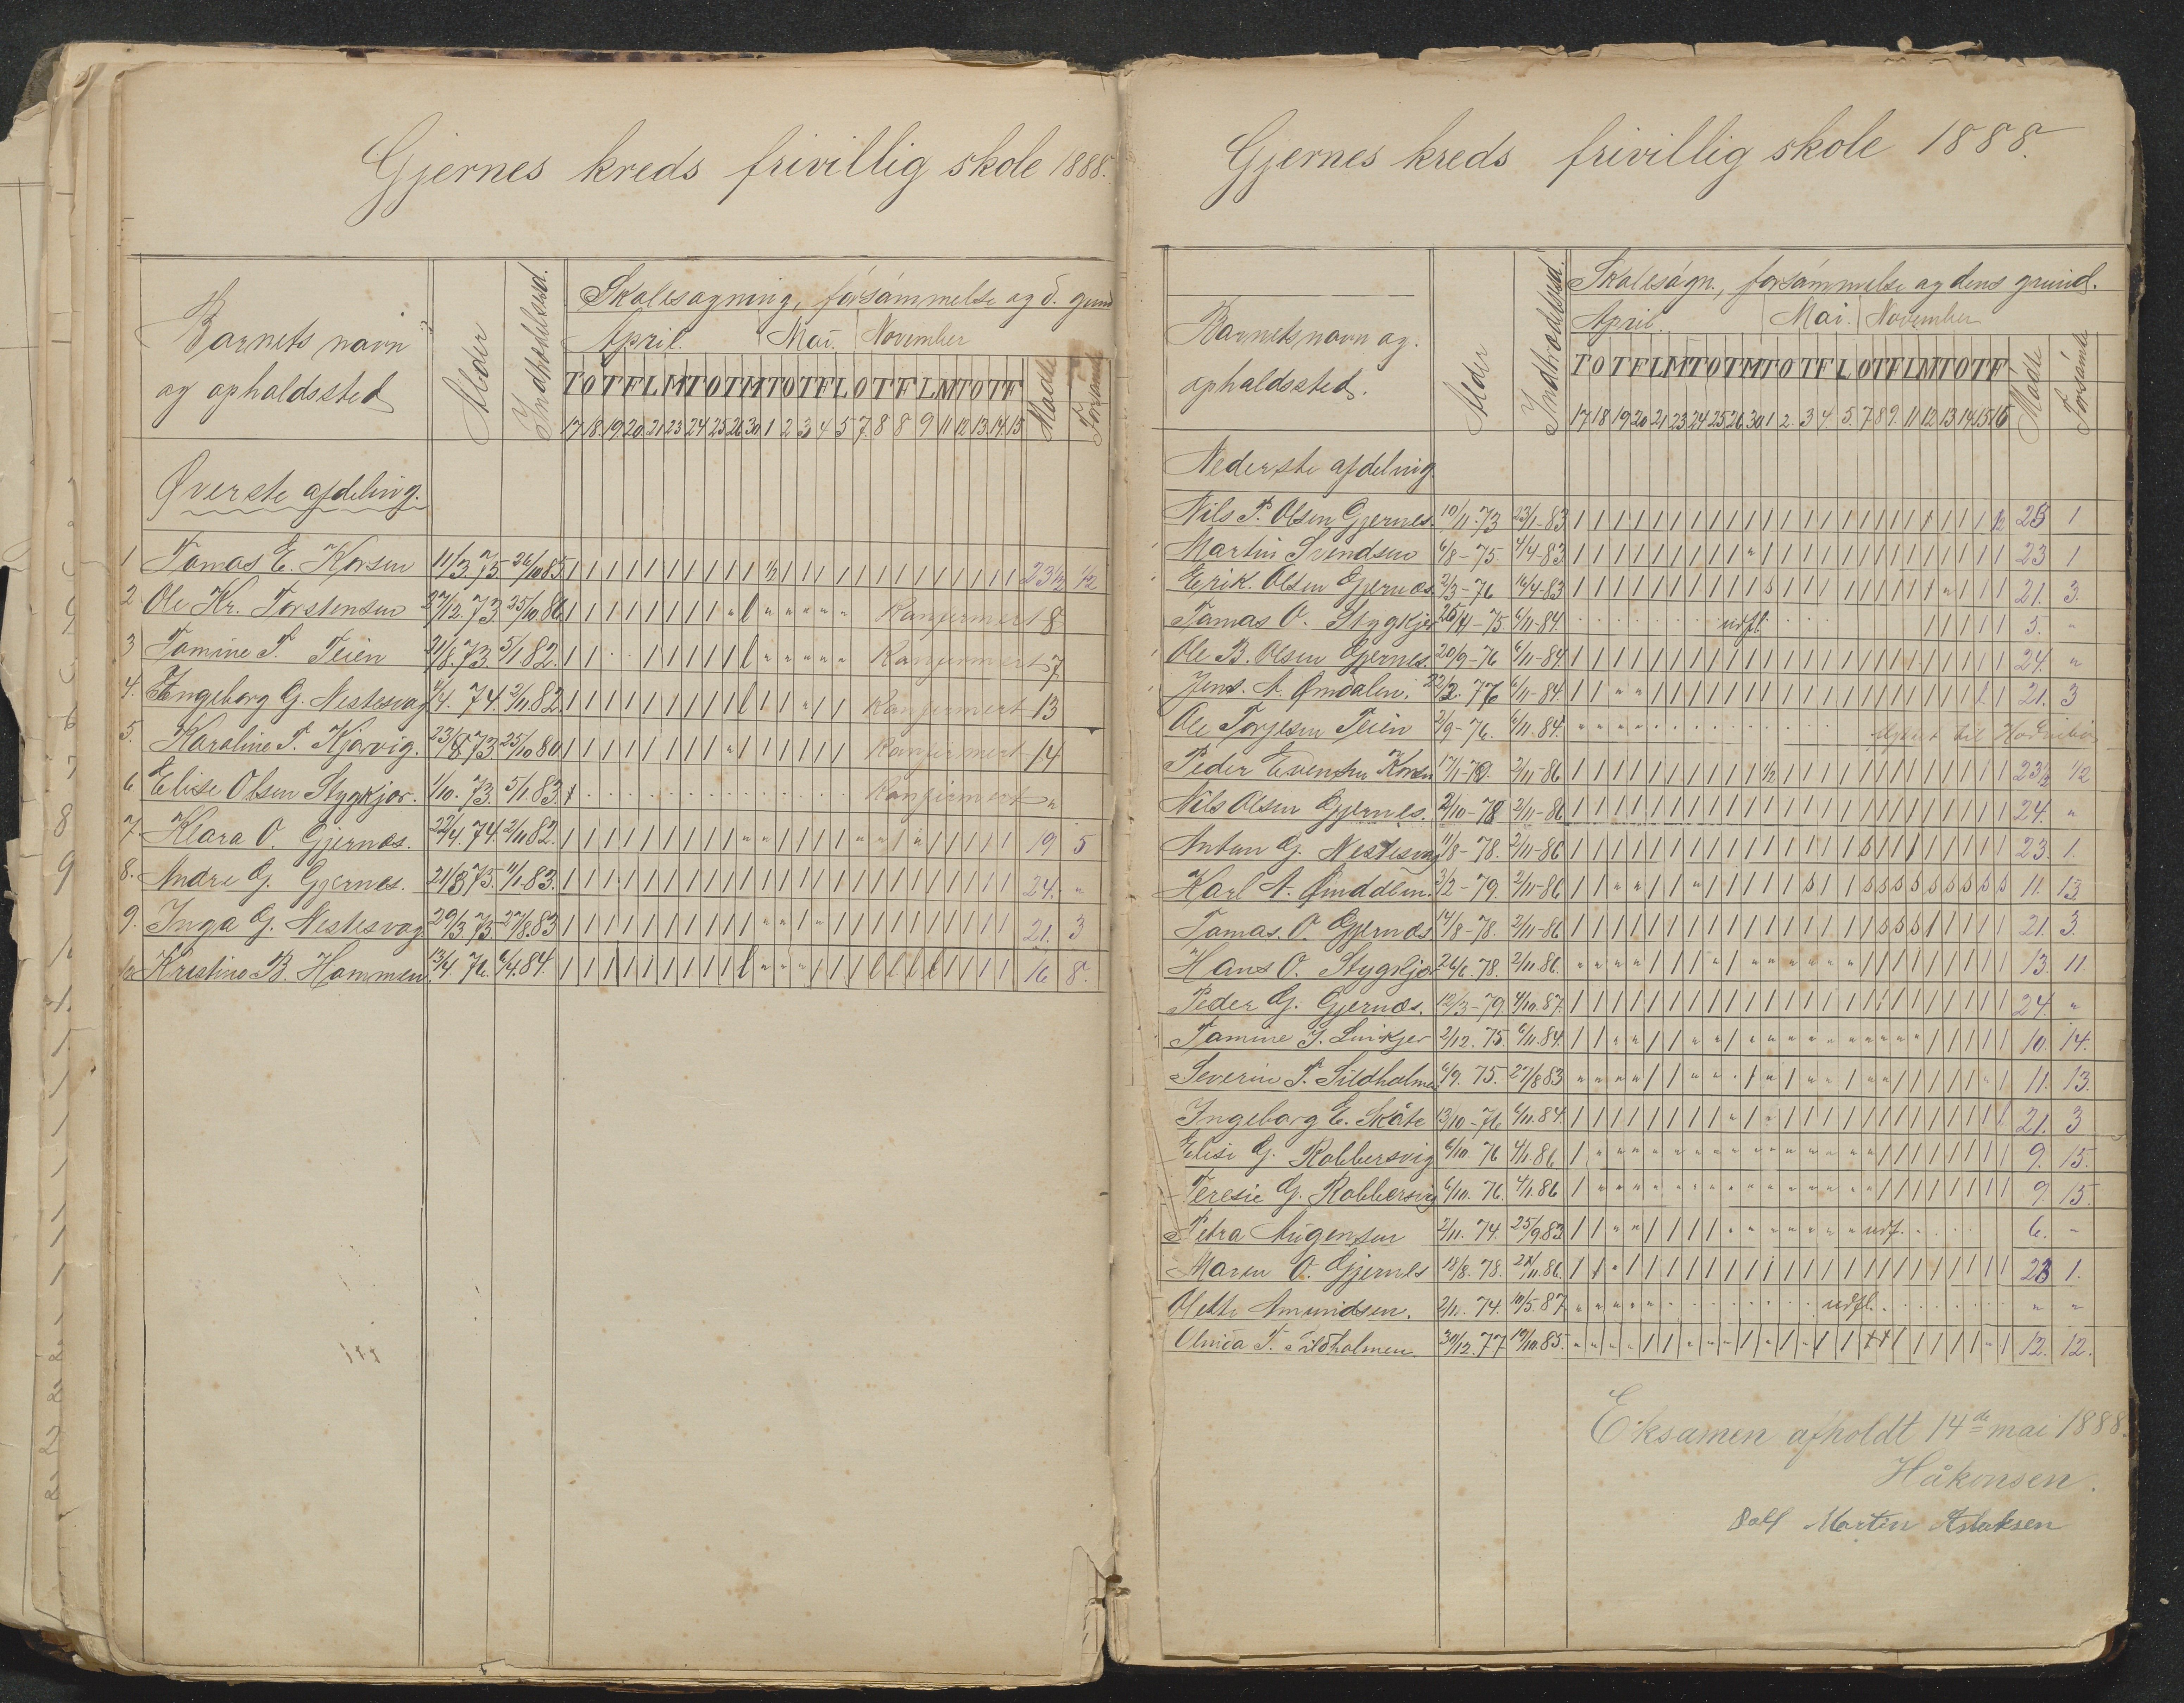 Gjernes kreds frivillig skole 1888.
Barnets navn og opholdssted
Alder
Skolesøgning, forsømmelse og d. grund
April. Mai. November
T O T F L M T O T M T O T F L O T F L M T O T F
17 18 19 20 21 23 24 25 26 30 1 2 3 4 5 7 8 8 9 11 12 13 14 15
Mødte
Forsømte
Øverste afdeling.
1 Tomas E. Korsen 11/3 75. 26/10 85 23 1/2 1/2
2 Ole Kr. Torstensen 27/12. 73. 25/10. 86 Konfirmert 8
3 Tomine T. Teien 21/8. 73. 5/1 82. Konfirmert 7
4. Ingeborg G. Nestesvag 4/4. 74. 2/11 82. Konfirmert 13
5. Karoline T. Kjørvig. 23/8 73. 25/10 80. Konfirmert 14
6 Elise Olsen Stygkjør. 1/10. 73. 5/1. 83. Konfirmert "
7. Klara O. Gjernes. 22/4. 74. 2/11 82. 19 5
8. Andre G. Gjernes. 21/8 75. 11/1. 83. 24. "
9. Inga G. Nestesvag 29/3. 75 27/8. 83 21. 3
10 Kristine B. Hommen. 13/4. 76. 6/4. 84. 16 8.
Gjernes kreds frivillig skole 1888.
Barnets navn og opholdssted.
Alder
Indtrædelsestid.
Skolesøgn., forsømmelse og dens grund.
April. Mai. November
T O T F L M T O T M T O T F L O T F L M T O T F
17 18 19 20 21 23 24 25 26 30 1 2. 3 4. 5. 7 8 9. 11 12 13 14 15 16
Mødte
Forsømte
Nederste afdeling.
Nils P. Olsen Gjernes. 10/11. 73 23/1-83 1
Martin Svendsen 6/8-75 4/4-83 23 1
Erik. Olsen Gjernes. 2/3-76 16/4-83 21. 3.
Tomas O. Stygkjør 6/11-84. udfl. 5. "
Ole B. Olsen Gjernes. 20/9-76 6/11-84. 24. "
Jens. A. Omdalen. 22/2. 76 6/11-84. 21. 3
Ole Torjesen Teien 2/9-76. 6/11-84. til
Peder Evensen Korsen 17/1-78. 2/11-86 23 1/2 1/2
Nils Olsen Gjernes. 2/10-78 2/11-86 24. "
Anton G. Nestesvag 11/8-78. 2/11-86 23. 1.
Karl A. Omdalen. 3/2-79. 2/11-86 11. 13.
Tomas. O. Gjernes 14/8-78. 2/11-86 21. 3.
Hans O. Stygkjør 26/6. 78. 2/11 86. 13. 11.
Peder G. Gjernes. 12/3-79. 4/10. 87. 24. "
Tomine J. 2/12. 75. 6/11. 84. 10. 14.
Severin T. Sildholmen 6/9. 75. 27/8 83 11. 13.
Ingeborg E. Skåte 13/10-76 6/11. 84. 21. 3
Elise G. Robbersvig 6/10. 76 4/1. 86 9. 15.
Teresie G. Robbersvig 6/10. 76. 4/1. 86 9. 15.
Petra Mugensen 2/11. 74. 25/9 83 udf. 6. "
Maren O. Gjernes 18/8. 78. 86. 23 1.
Olette Amundsen. 2/11. 74. 10/5. 87 udfl. " "
T. Sildholmen. 30/12. 77 19/10. 85. 12. 12.
Eksamen afholdt 14de mai 1888.
Håkonsen.
Martin Aslaksen